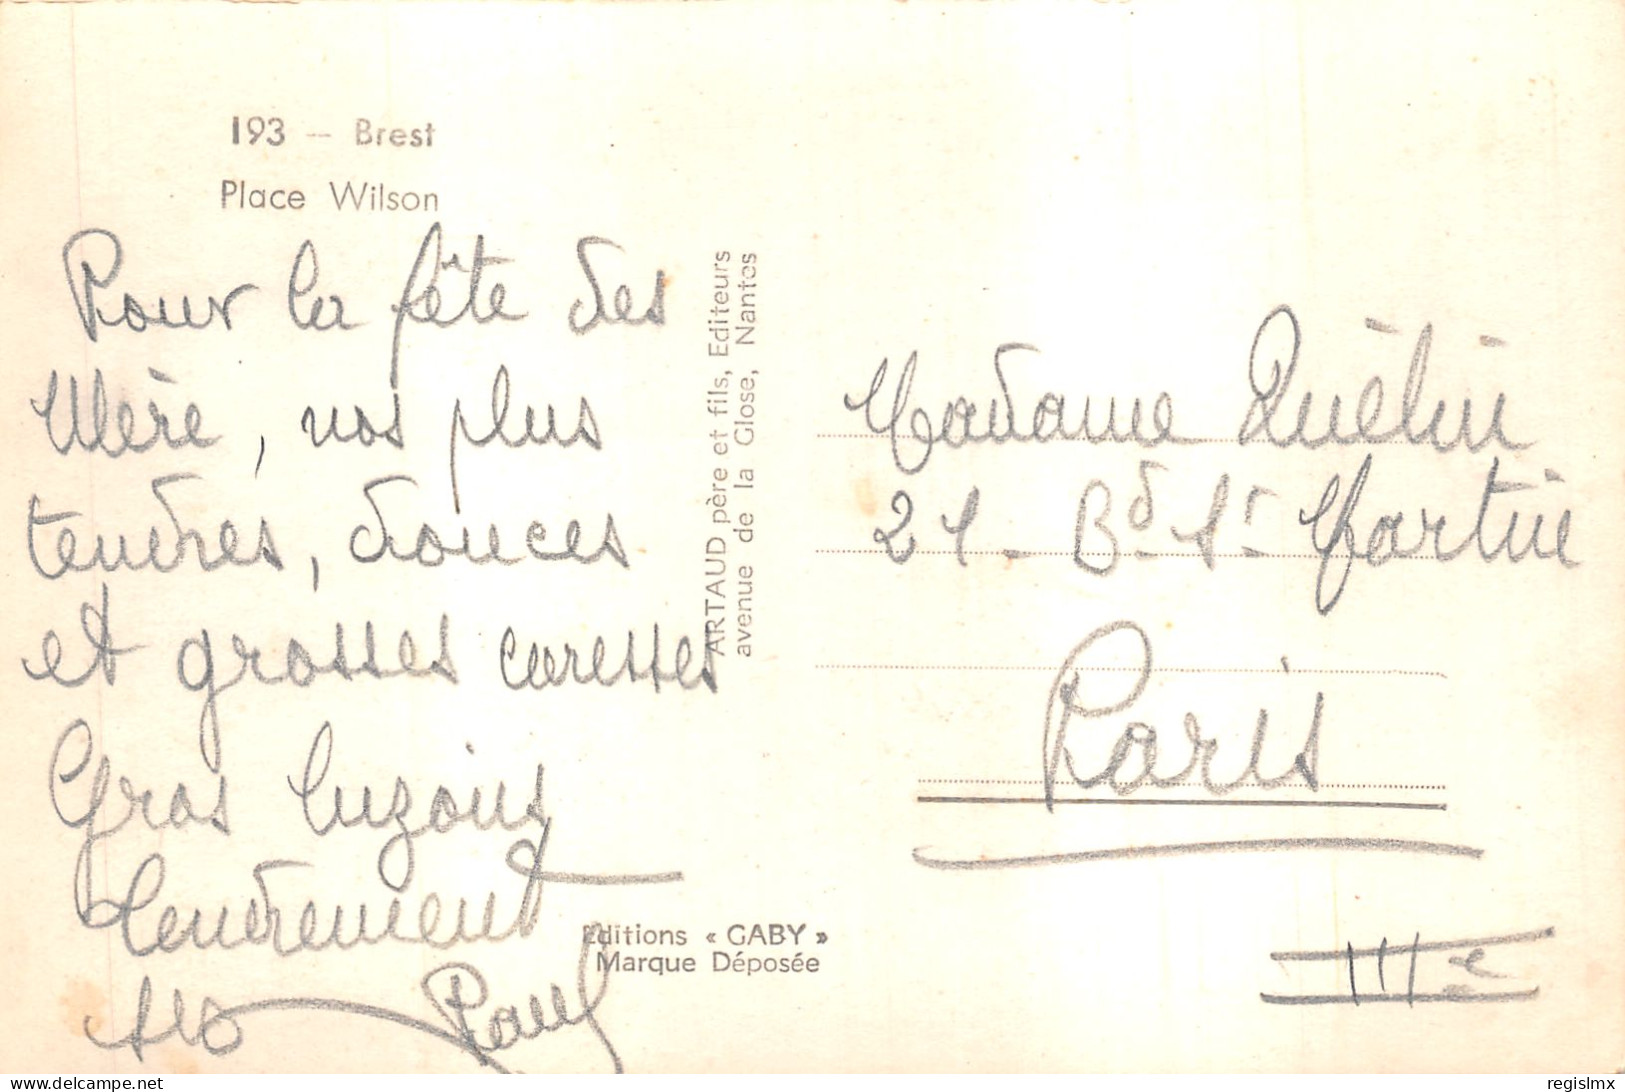 193 — Brest
Place Wilson
Pour la fête des
Mère, nos plus
tendres, douces
et grosses caresses
Gros
Tendrement
Paul
ARTAUD père et fils, Editeurs
avenue de la Close, Nantes
Editions « GABY »
Marque Déposée
Madame Quélin
21 - Bd St Martin
Paris
IIIe
delcampe.net
regislmx